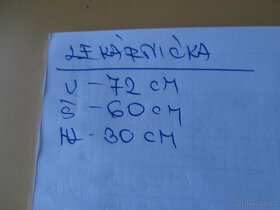 LEKÁRNIČKA
V - 72 CM
Š - 60 CM
HL - 30 CM
Bazoš.cz